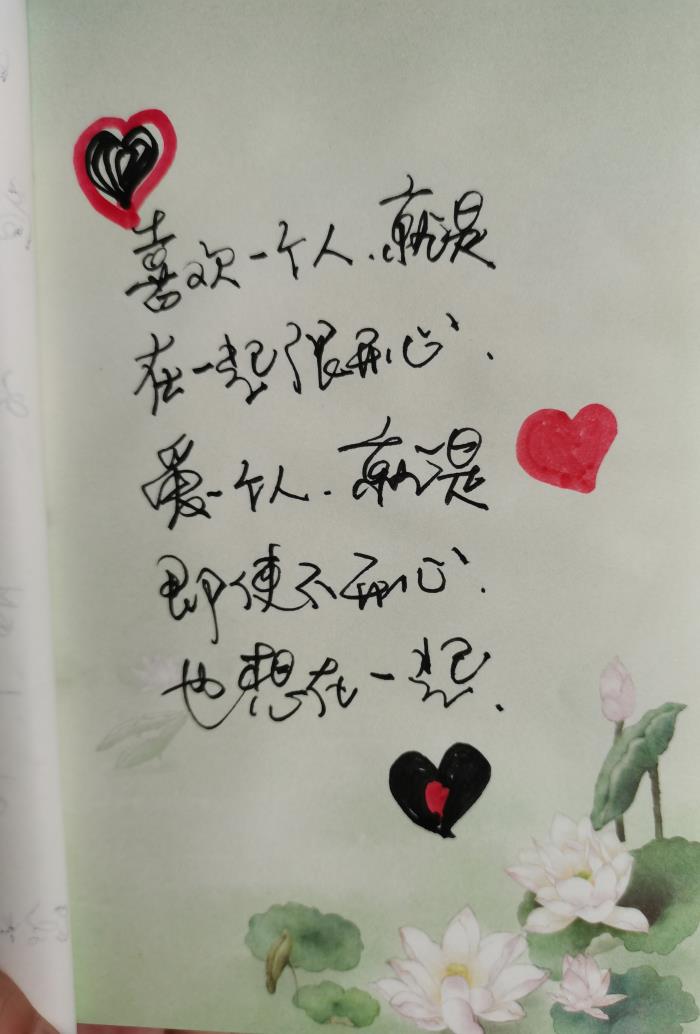 喜欢一个人.就是
在一起很开心.
爱一个人.就是
即使不开心.
也想在一起.